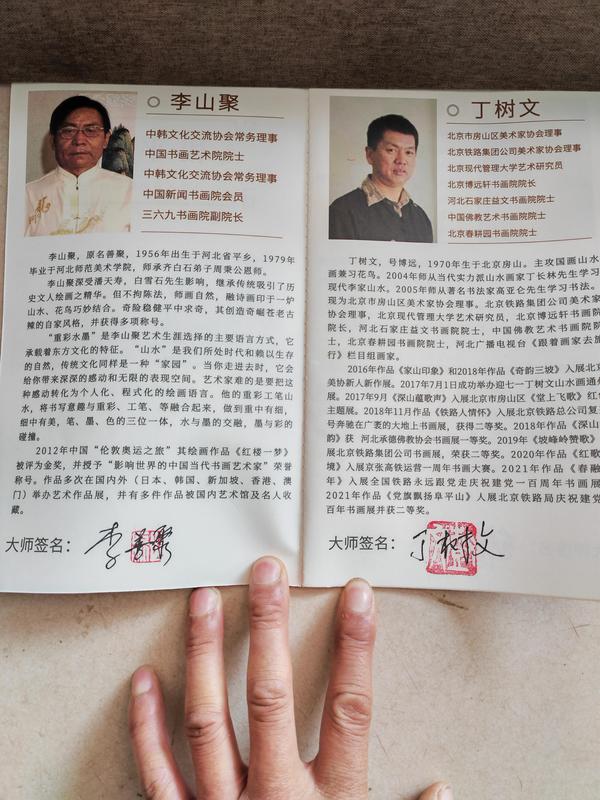 李山聚
中韩文化交流协会常务理事
中国书画艺术院院士
中韩文化交流协会常务理事
中国新闻书画院会员
三六九书画院副院长
李山聚，原名善聚，1956年出生于河北省平乡，1979年
毕业于河北师范美术学院，师承齐白石弟子周秉公恩师。
李山聚深受潘天寿，白雪石先生影响，继承传统吸引了历
史文人绘画之精华。但不拘陈法，师画自然，融诗画印于一炉
山水、花鸟巧妙结合。奇险稳健平中求奇，其创造奇崛苍老古
辣的自家风格，并获得多项称号。
“重彩水墨”是李山聚艺术生涯选择的主要语言方式，它
承载着东方文化的特征。“山水”是我们所处时代和赖以生存
的自然，传统文化同样是一种“家园”。当你走进去时，它会
给你带来深深的感动和无限的表现空间。艺术家难的是要把这
种感动转化为个人化、程式化的绘画语言。他的重彩工笔山
水，将书写意趣与重彩、工笔、等融合起来，做到重中有细，
细中有美，笔、墨、色的三位一体，水与墨的交融，墨与彩的
碰撞。
2012年中国“伦敦奥运之旅”其绘画作品《红楼一梦》
被评为金奖，并授予“影响世界的中国当代书画艺术家”荣誉
称号。作品多次在国内外（日本、韩国、新加坡、香港、澳
门）举办艺术作品展，并有多件作品被国内艺术馆及名人收
藏。
大师签名：李善聚
丁树文
北京市房山区美术家协会理事
北京铁路集团公司美术家协会理事
北京现代管理大学艺术研究员
北京博远轩书画院院长
河北石家庄益文书画院院士
中国佛教艺术书画院院士
北京春耕园书画院院士
丁树文，号博远，1970年生于北京房山。主攻国画山水
画兼习花鸟。2004年师从当代实力派山水画家丁长林先生学习
现代李家山水。2005年师从著书法家高亚仑先生学习书法。
现为北京市房山区美术家协会理事。北京铁路集团公司美术家
协会理事，北京现代管理大学艺术研究员，北京博远轩书画院
院长，河北石家庄益文书画院院士，中国佛教艺术书画院院
士，北京春耕园书画院院士，河北广播电视台《跟着画家去旅
行》栏目组画家。
2016年作品《家山印象》和2018年作品《奇韵三坡》入展北京
美协新人新作展。2017年7月1日成功举办迎七一丁树文山水画通
展。2017年9月《深山蕴歌声》入展北京市房山区《堂上飞歌》红
主题展。2018年11月作品《铁路人情怀》入展北京铁路总公司复
号奔驰在广袤的大地上书画展，获得二等奖。2018年作品《深山
韵》获 河北承德佛教协会书画展一等奖。2019年《坡峰岭赞歌》
展北京铁路集团公司书画展，荣获二等奖。2020年作品《红歌
境》入展京张高铁运营一周年书画大赛。2021年作品《春融
年》入展全国铁路永远跟党走庆祝建党一百周年书画展
2021年作品《党旗飘扬阜平山》人展北京铁路局庆祝建党
百年书画展并获二等奖。
大师签名：丁树文